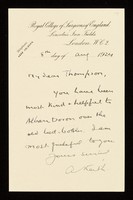 Royal College of Surgeons of England
Lincolns Inn Fields
London W.C.2
5th day of Aug 1924
My dear Thompson,
You have been
most kind & helpful to
Alban Doran over the
old List. I am
most grateful to you
Yours sincerely
A Keith